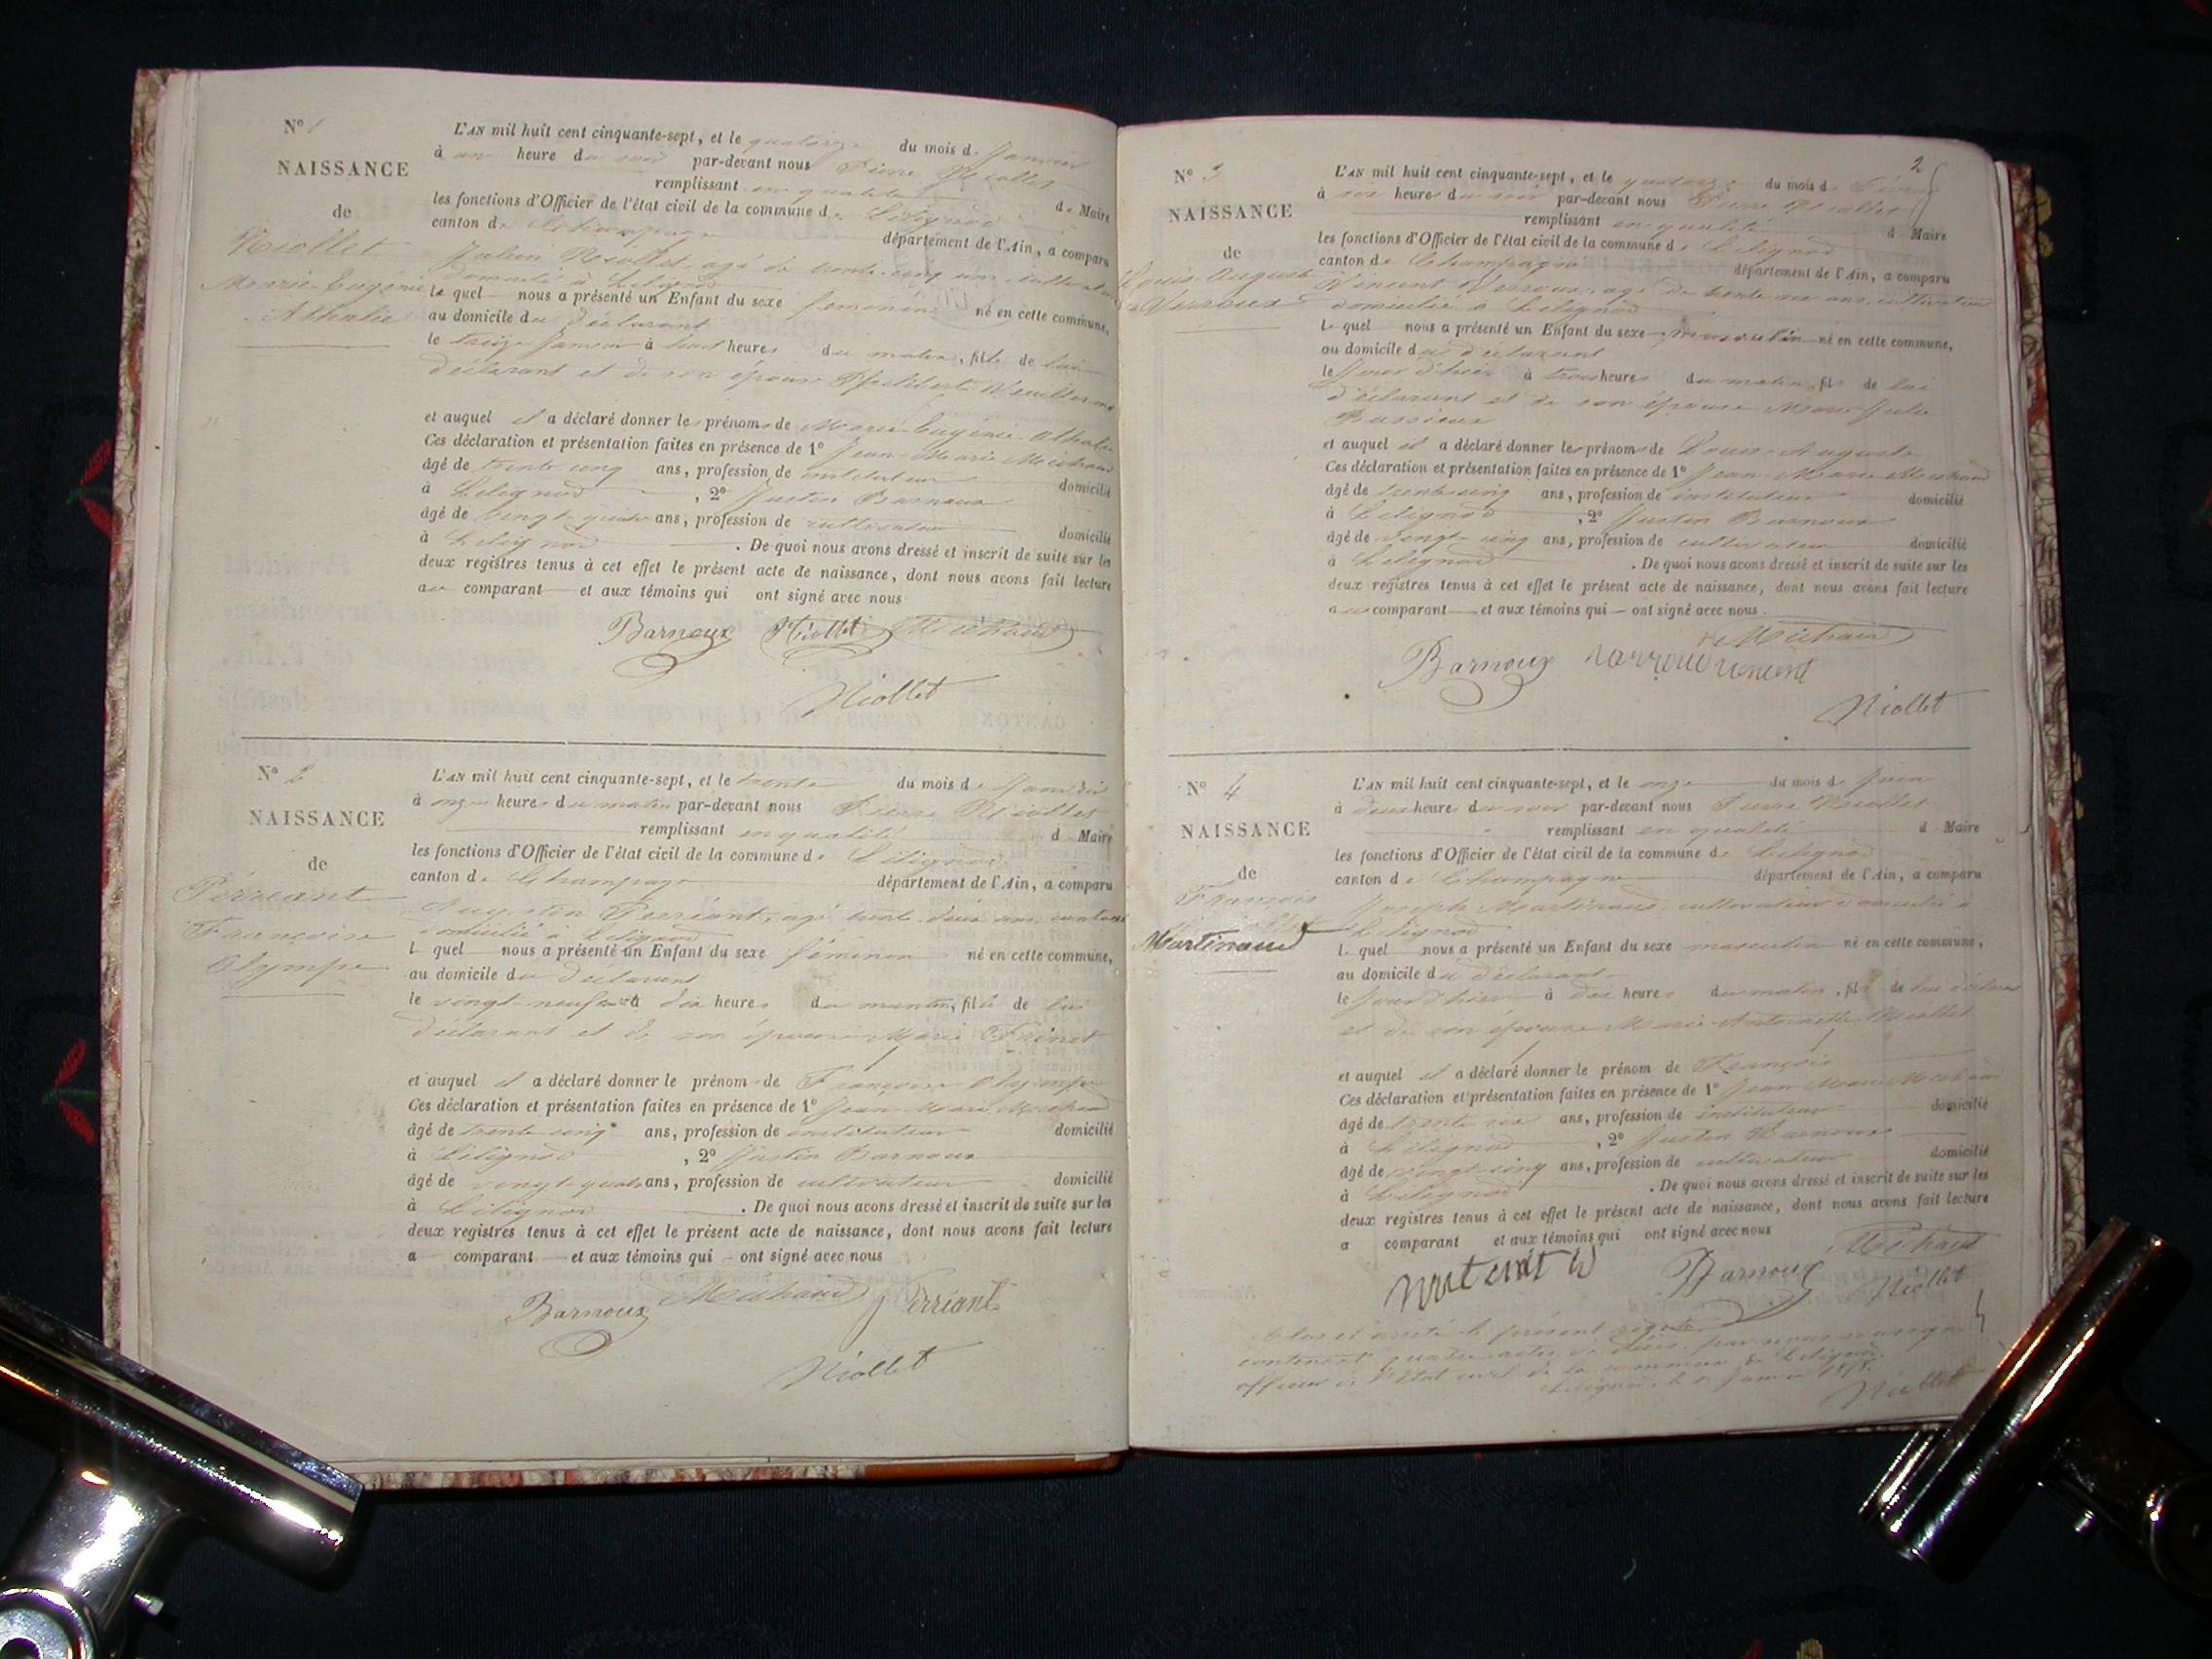 Nº 1
NAISSANCE
de
Niollet
Marie-Eugénie
Athalie
L'AN mil huit cent cinquante-sept, et le quatorze du mois de Janvier
à une heure du soir par-devant nous Pierre Niollet
remplissant en qualité de Maire
les fonctions d'Officier de l'état civil de la commune de Lilignod
canton de Champagne département de l'Ain, a comparu
Julien Niollet, agé de trente-cinq ans, cultivateur
domicilié à Lilignod
le quel nous a présenté un Enfant du sexe féminin né en cette commune,
au domicile du déclarant
le treize Janvier à huit heures du matin, fille de lui
déclarant et de son épouse Philiberte
et auquel il a déclaré donner les prénoms de Marie-Eugénie-Athalie
Ces déclaration et présentation faites en présence de 1º Jean-Marie Michaud
âgé de trente cinq ans, profession de instituteur domicilié
à Lilignod, 2º Justin Barnoux
âgé de vingt-quatre ans, profession de cultivateur domicilié
à Lilignod. De quoi nous avons dressé et inscrit de suite sur les
deux registres tenus à cet effet le présent acte de naissance, dont nous avons fait lecture
au comparant et aux témoins qui ont signé avec nous
Barnoux Niollet Michaud
Niollet
Nº 2
NAISSANCE
de
Perréant
Françoise
Olympe
L'AN mil huit cent cinquante-sept, et le trente du mois de Janvier
à onze heures du matin par-devant nous Pierre Niollet
remplissant en qualité de Maire
les fonctions d'Officier de l'état civil de la commune de Lilignod
canton de Champagne département de l'Ain, a comparu
Augustin Perréant, agé trente-deux ans
domicilié à Lilignod
l quel nous a présenté un Enfant du sexe féminin né en cette commune,
au domicile du déclarant
le vingt-neuf à dix heures du matin, fille de lui
déclarant et de son épouse Marie
et auquel il a déclaré donner le prénom de Françoise Olympe
Ces déclaration et présentation faites en présence de 1º Jean-Marie Michaud
âgé de trente cinq ans, profession de instituteur domicilié
à Lilignod, 2º Justin Barnoux
âgé de vingt-quatre ans, profession de cultivateur domicilié
à Lilignod. De quoi nous avons dressé et inscrit de suite sur les
deux registres tenus à cet effet le présent acte de naissance, dont nous avons fait lecture
a comparant et aux témoins qui ont signé avec nous
Barnoux Michaud Perriant
Niollet
2
Nº 3
NAISSANCE
de
Louis-Auguste
Verroux
L'AN mil huit cent cinquante-sept, et le quatorze du mois de Février
à six heures du soir par-devant nous Pierre Niollet
remplissant en qualité d Maire
les fonctions d'Officier de l'état civil de la commune de Lilignod
canton de Champagne département de l'Ain, a comparu
Vincent Verroux, agé de trente six ans, cultivateur
domicilié à Lilignod
le quel nous a présenté un Enfant du sexe masculin né en cette commune,
au domicile du déclarant
le Jour d'hier à trois heures du matin, fils de lui
déclarant et de son épouse Marie Julie
et auquel il a déclaré donner les prénoms de Louis-Auguste
Ces déclaration et présentation faites en présence de 1º Jean-Marie Michaud
âgé de trente-cinq ans, profession de instituteur domicilié
à Lilignod, 2º Justin Barnoux
âgé de vingt-cinq ans, profession de cultivateur domicilié
à Lilignod. De quoi nous avons dressé et inscrit de suite sur les
deux registres tenus à cet effet le présent acte de naissance, dont nous avons fait lecture
au comparant et aux témoins qui ont signé avec nous.
Michaud
Barnoux
Niollet
Nº 4
NAISSANCE
de
François
Martinaud
L'AN mil huit cent cinquante-sept, et le onze du mois de Juin
à deux heures du soir par-devant nous Pierre Niollet
remplissant en qualité d Maire
les fonctions d'Officier de l'état civil de la commune de Lilignod
canton de Champagne département de l'Ain, a comparu
Joseph Martinaud, cultivateur domicilié à
Lilignod
le quel nous a présenté un Enfant du sexe masculin né en cette commune,
au domicile du déclarant
le Jour d'hier à dix heures du matin, fils de lui déclarant
et de son épouse Marie-Antoinette Niollet
et auquel il a déclaré donner le prénom de François
Ces déclaration et présentation faites en présence de 1º Jean Marie Michaud
âgé de trente six ans, profession de instituteur domicilié
à Lilignod, 2º Justin Barnoux
âgé de vingt-cinq ans, profession de cultivateur domicilié
à Lilignod. De quoi nous avons dressé et inscrit de suite sur les
deux registres tenus à cet effet le présent acte de naissance, dont nous avons fait lecture
a comparant et aux témoins qui ont signé avec nous
Michaud
Barnoux Niollet
Clos et arrêté le présent registre
contenant quatre actes par nous
officier de l'état civil de la commune de Lilignod
Lilignod le Janvier 1858.
Niollet